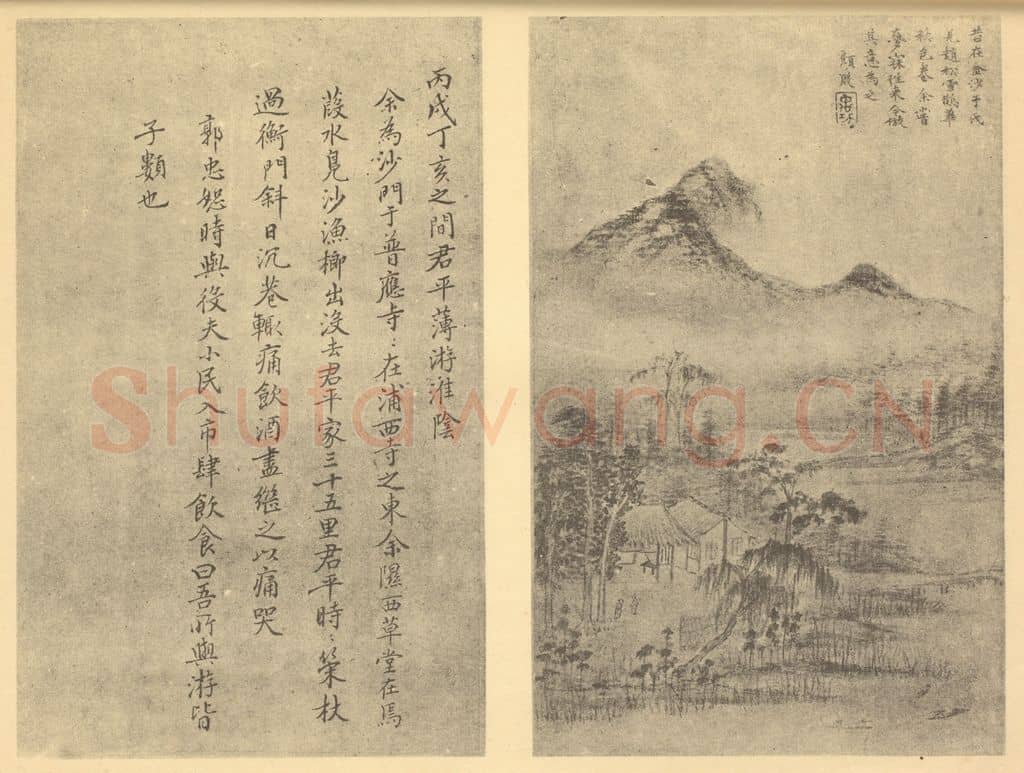 昔在金沙于氏
見趙松雪鵲華
秋色卷余嘗
夢寐往來今倣
其意為之
丙戌丁亥之間君平薄游淮陰
余為沙門于普應寺〻在浦西寺之東余隰西草堂在焉
葭水鳧沙漁榔出沒去君平家三十五里君平時〻策杖
過衡門斜日沉巷輒痛飲酒盡繼之以痛哭
郭忠恕時與役夫小民入市肆飲食曰吾所與游皆
子類也
Shufawang.CN